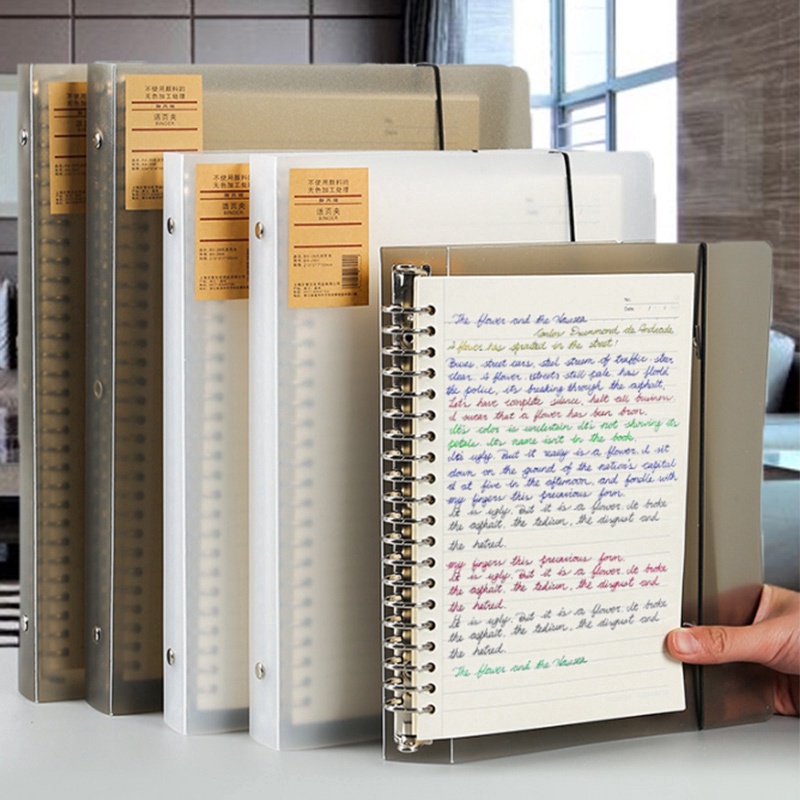 不使用颜料的
无色加工处理
活页夹
BINDER
不使用颜料的
无色加工处理
活页夹
BINDER
不使用颜料的
无色加工处理
活页夹
BINDER
不使用颜料的
无色加工处理
活页夹
BINDER
No.
Date
The flower and the Nausea
Carlos Drummond de Andrade
A flower has sprouted in the street!
Buses, street cars, steel stream of traffic. steer
clear. A flower, still pale, has
the police, it's breaking through the asphalt.
Let's have complete silence, halt all business.
I swear that a flower has been born.
It's color is uncertain It's not showing its
petals. Its name isn't in the book.
It's ugly. But it really is a flower. I sit
down on the ground of the nation's capital
at at five in the afternoon, and fondle with
my fingers this precarious form.
It is ugly. But it is a flower. It broke
the asphalt, the tedium, the disgust and
the hatred.
my fingers this precarious form.
It is ugly. But it is a flower. It broke
the asphalt, the tedium, the disgust and
the hatred.
It is ugly. But it is a flower. It broke
the asphalt, the tedium, the disgust and
the hatred.
The flower and the Nausea